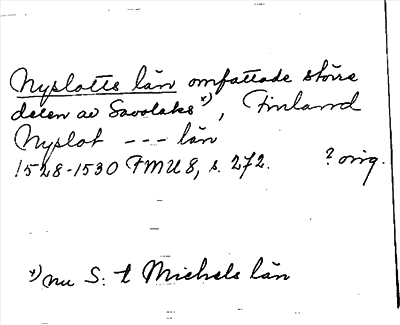 Nyslotts län omfattade större
delen av Savolaks x), Finland
Nyslot --- län
1528-1530 FMU 8, s. 272. ? orig.
x) nu S:t Michels län